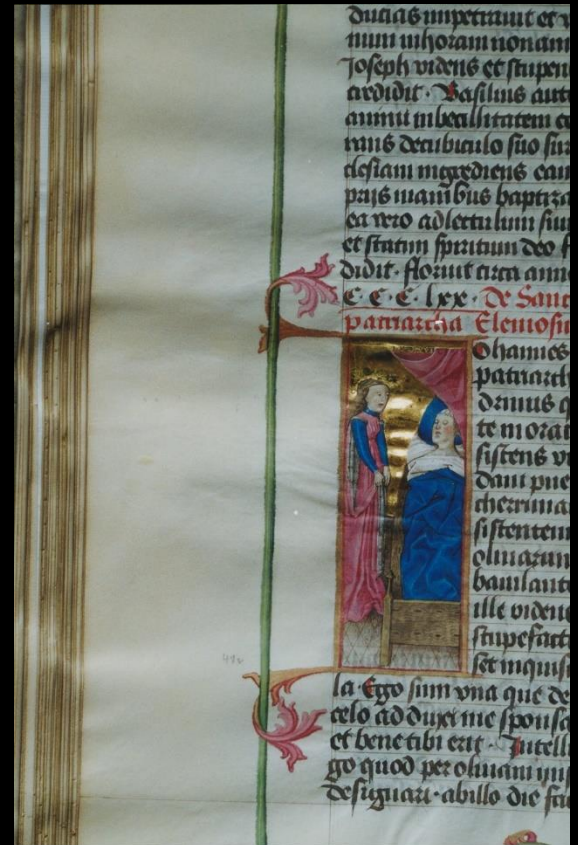 ducias impetrauit et v
num inhoram nonam
Joseph videns et stupen
credidit · Basilius aut
animi imbecillitatem co
rans decubiculo suo sur
clesiam ingrediens eam
prijs manibus baptiza
ea vero ad lectulum suu
et statim spiritum deo
didit · floruit circa anno
C C C lxx · De Sanc
patriarcha Elemosi
Ohannes
patriarch
drinus q
te morat
sistens v
dam pue
cherrima
sistentem
oliuarum
baiulant
ille viden
stupefact
set inquisi
la Ego sum vna que de
celo adduxi me sponsa
et bene tibi erit · Intelli
go quod per oliuam mis
designari · abillo die